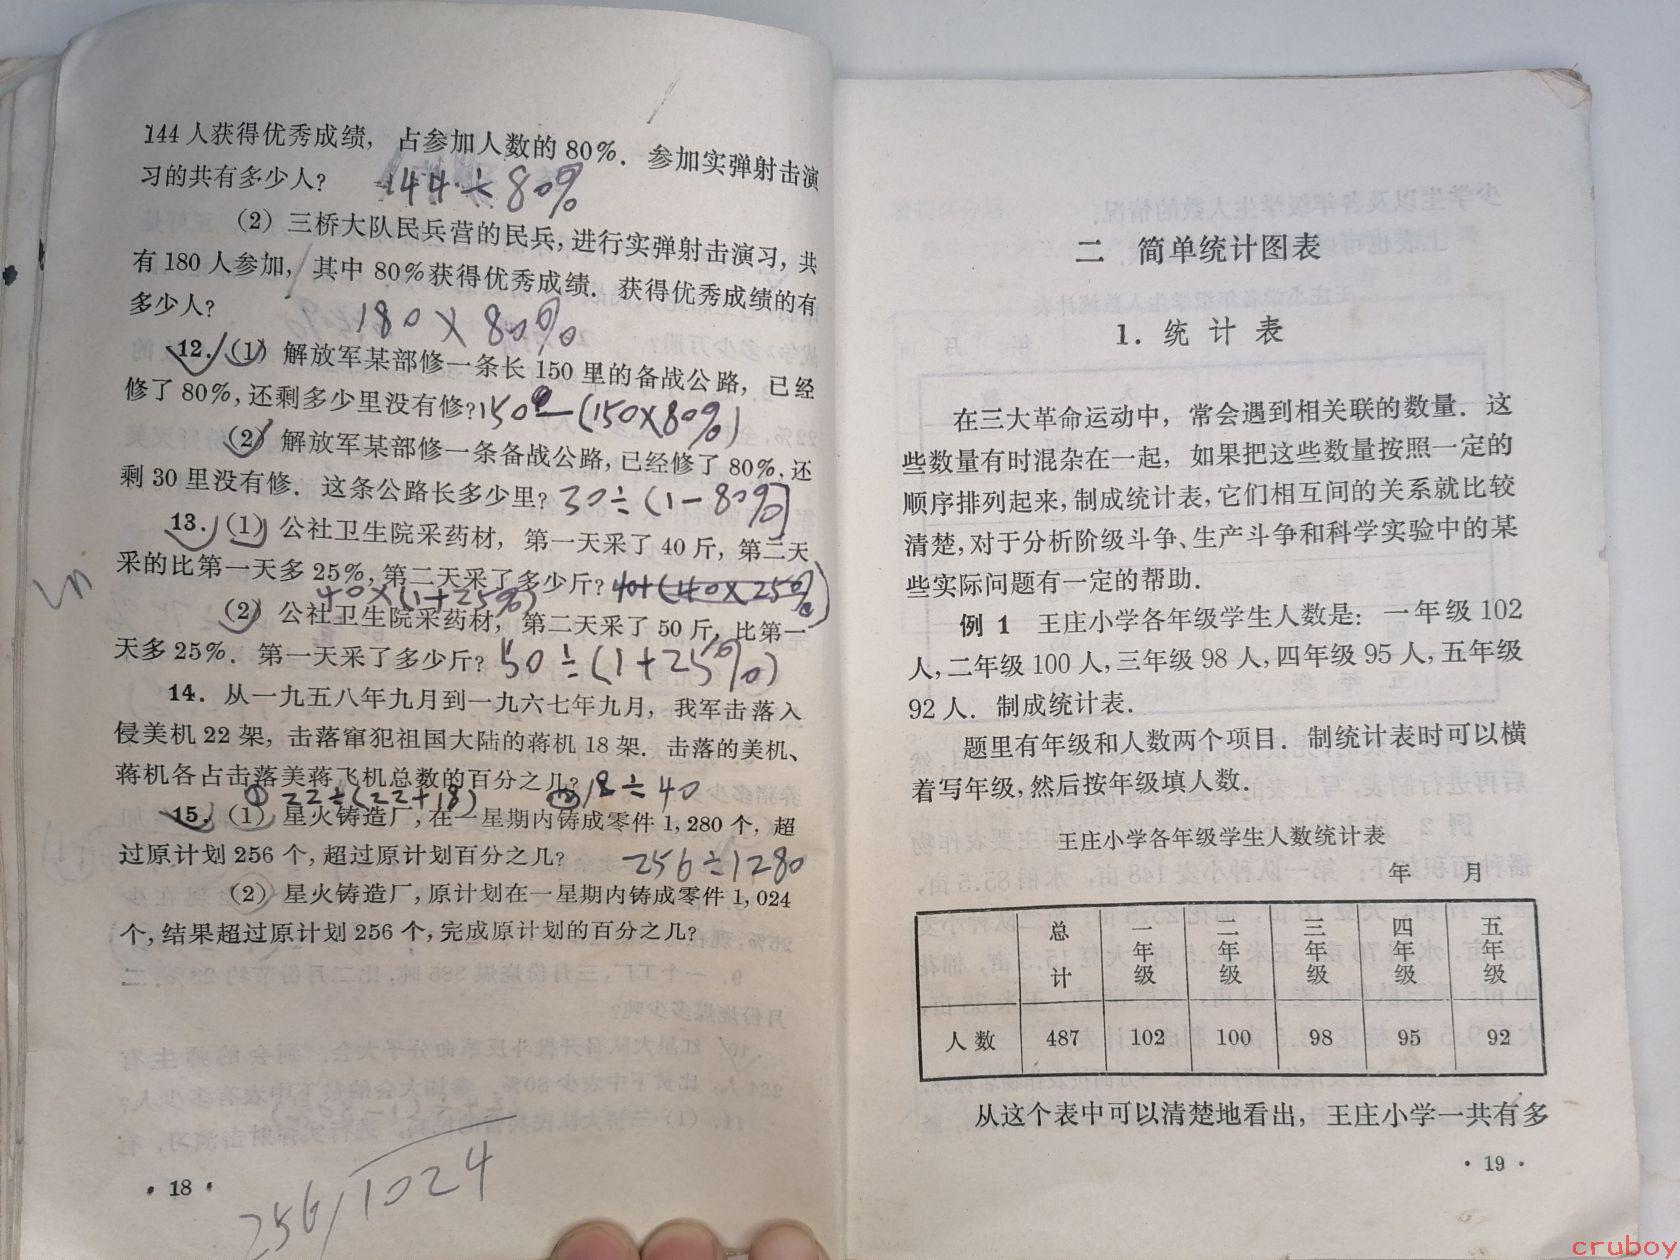 144人获得优秀成绩，占参加人数的80%．参加实弹射击演
习的共有多少人？ 144÷80%
（2）三桥大队民兵营的民兵，进行实弹射击演习，共
有180人参加，其中80%获得优秀成绩．获得优秀成绩的有
多少人？ 180×80%
12．（1）解放军某部修一条长150里的备战公路，已经
修了80%，还剩多少里没有修？150－(150×80%)
（2）解放军某部修一条备战公路，已经修了80%，还
剩30里没有修．这条公路长多少里？30÷(1－80%)
13．（1）公社卫生院采药材，第一天采了40斤，第二天
采的比第一天多25%，第二天采了多少斤？40+(40×25%)
40×(1+25%)
（2）公社卫生院采药材，第二天采了50斤，比第一
天多25%．第一天采了多少斤？50÷(1+25%)
14．从一九五八年九月到一九六七年九月，我军击落入
侵美机22架，击落窜犯祖国大陆的蒋机18架．击落的美机、
蒋机各占击落美蒋飞机总数的百分之几？
① 22÷(22+18) ② 18÷40
15．（1）星火铸造厂，在一星期内铸成零件1,280个，超
过原计划256个，超过原计划百分之几？ 256÷1280
（2）星火铸造厂，原计划在一星期内铸成零件1,024
个，结果超过原计划256个，完成原计划的百分之几？
256/1024
·18·
二 简单统计图表
1．统计表
在三大革命运动中，常会遇到相关联的数量．这
些数量有时混杂在一起，如果把这些数量按照一定的
顺序排列起来，制成统计表，它们相互间的关系就比较
清楚，对于分析阶级斗争、生产斗争和科学实验中的某
些实际问题有一定的帮助．
例1 王庄小学各年级学生人数是：一年级102
人，二年级100人，三年级98人，四年级95人，五年级
92人．制成统计表．
题里有年级和人数两个项目．制统计表时可以横
着写年级，然后按年级填人数．
王庄小学各年级学生人数统计表
年 月
总计 一年级 二年级 三年级 四年级 五年级
人数 487 102 100 98 95 92
从这个表中可以清楚地看出，王庄小学一共有多
·19·
cruboy